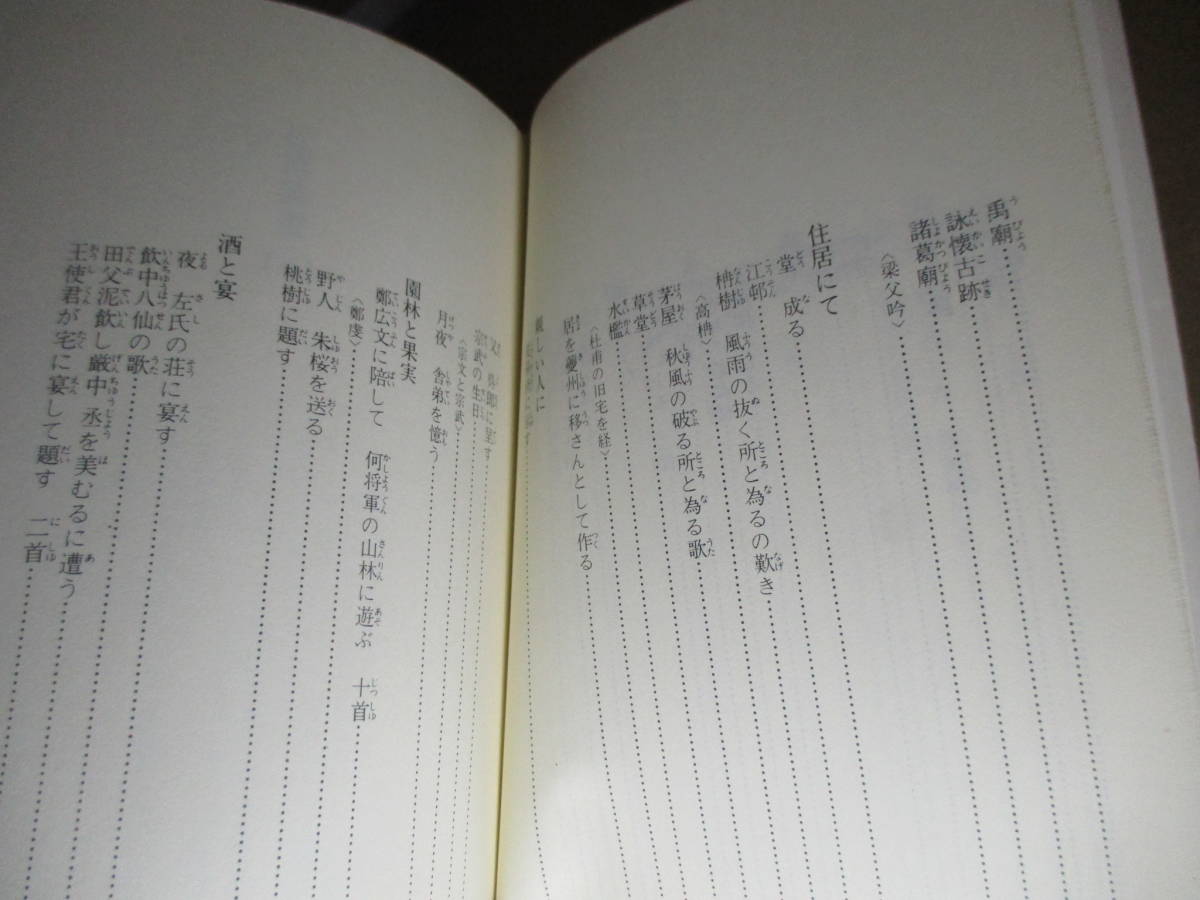 禹廟
詠懐古跡
諸葛廟
〈梁父吟〉
住居にて
堂成る
江邨
枏樹 風雨の抜く所と為るの歎き
〈高枏〉
茅屋 秋風の破る所と為る歌
草堂
水檻
〈杜甫の旧宅を経〉
居を夔州に移さんとして作る
親しい人に
宗武の生日
〈宗文と宗武〉
月夜 舎弟を憶う
園林と果実
鄭広文に陪して 何将軍の山林に遊ぶ 十首
〈鄭虔〉
野人 朱桜を送る
桃樹に題す
酒と宴
夜 左氏の荘に宴す
飲中八仙の歌
田父泥飲し厳中丞を美むるに遭う
王使君が宅に宴して題す 二首